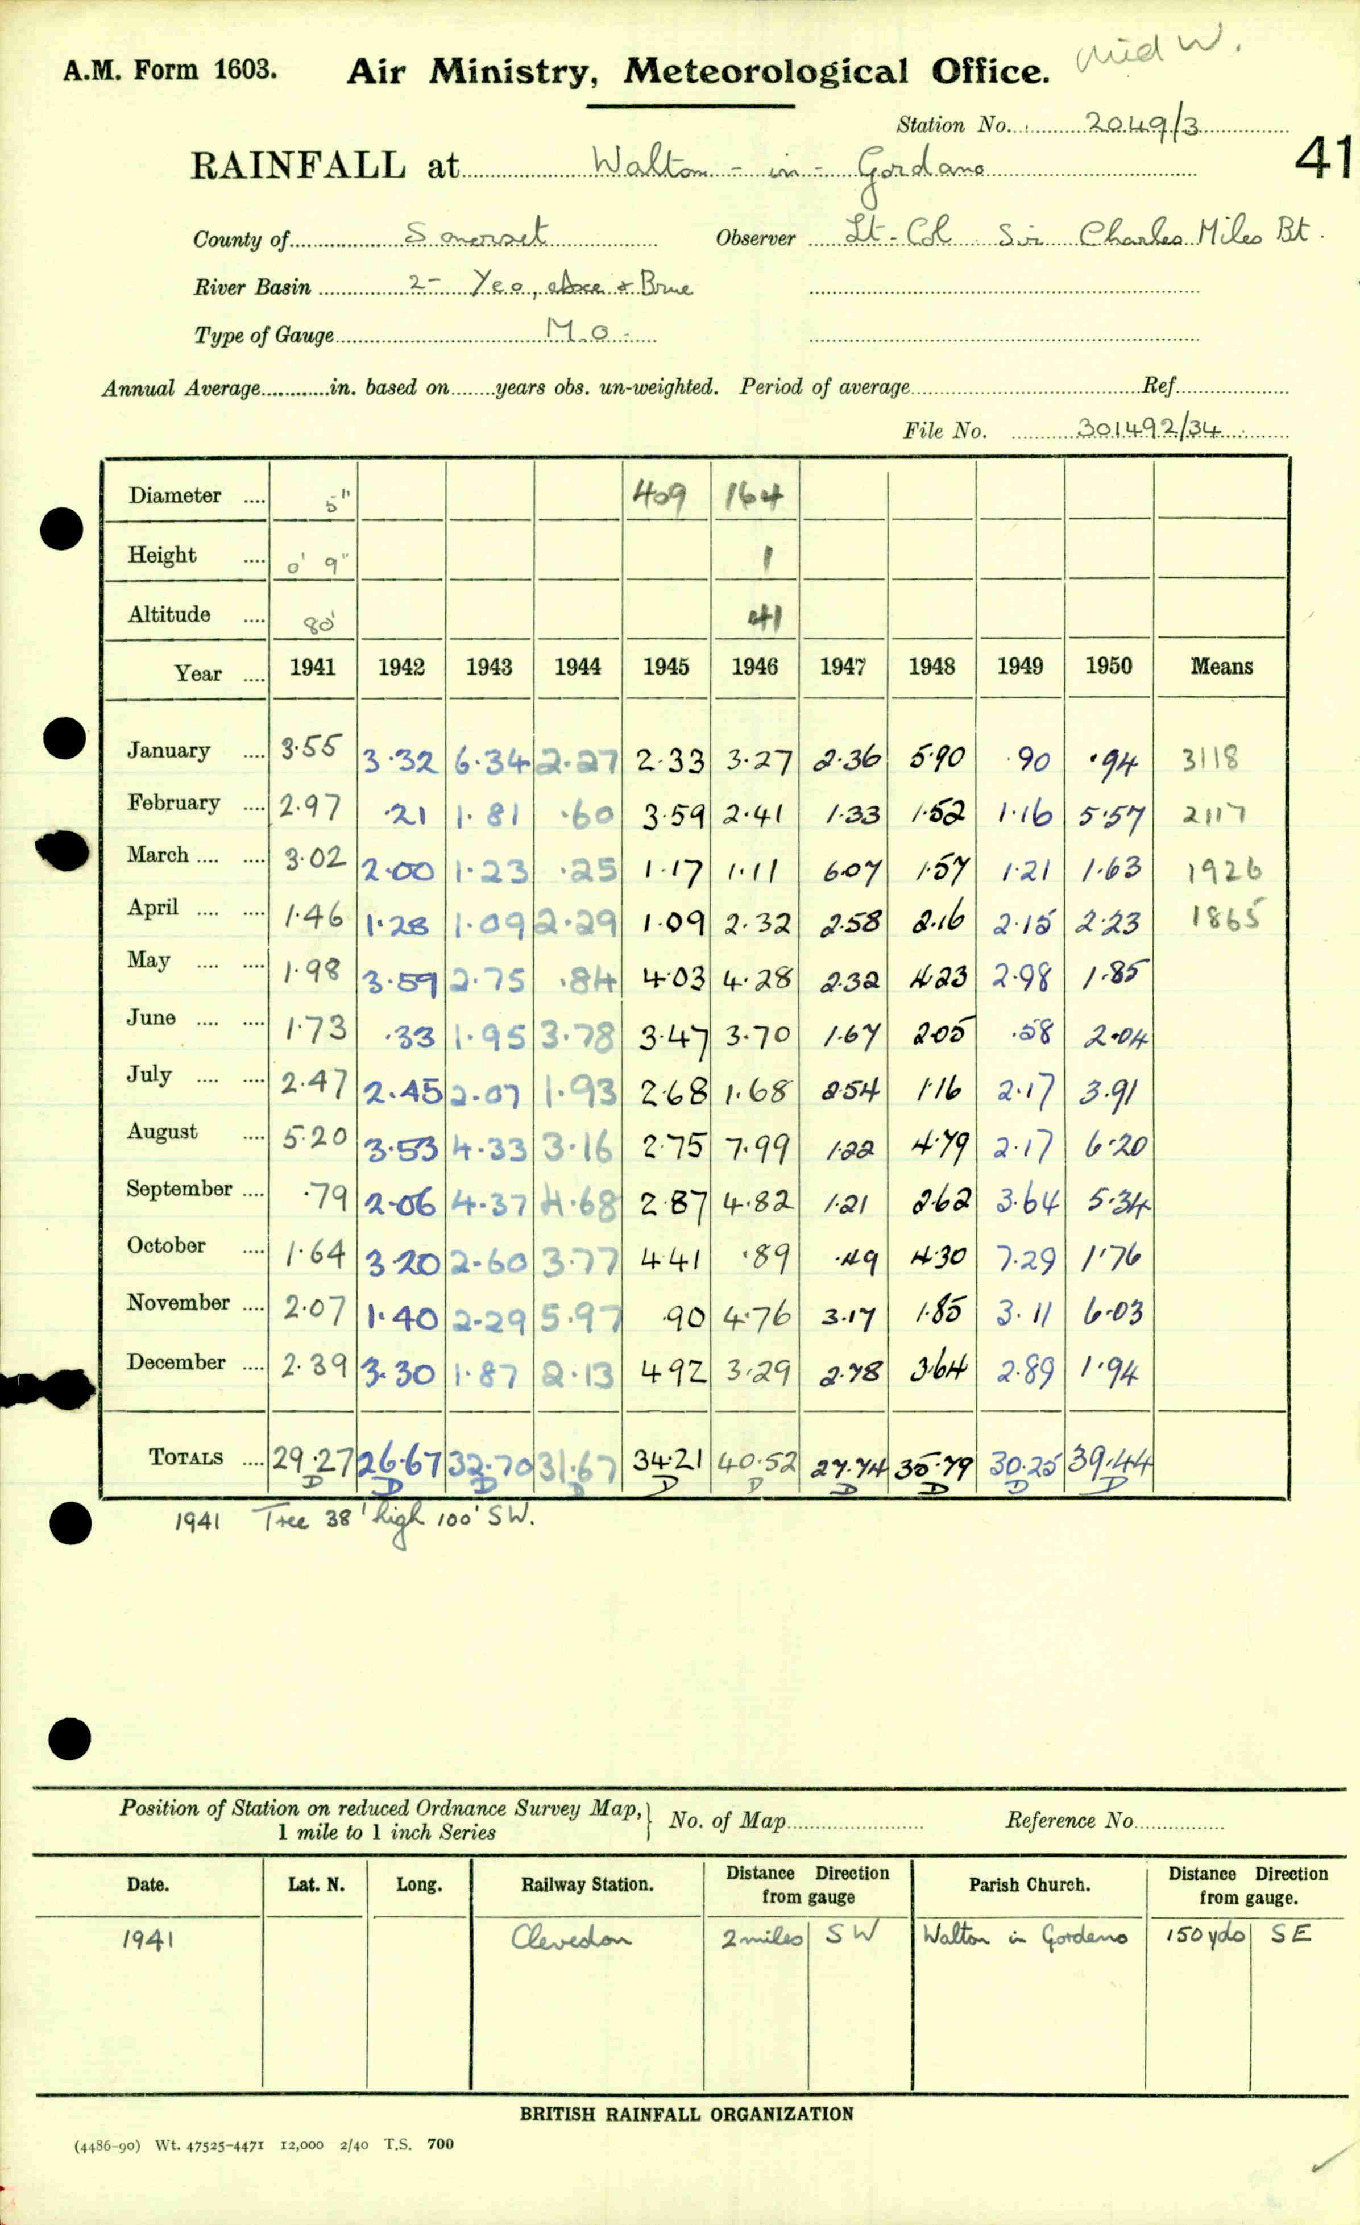 Mid W.
A.M. Form 1603. Air Ministry, Meteorological Office.
Station No. 2049/3
RAINFALL at Walton-in-Gordano 41
County of Somerset Observer Lt-Col Sir Charles Miles Bt.
River Basin 2- Yeo, Axe & Brue
Type of Gauge M.O.
Annual Average in. based on years obs. un-weighted. Period of average Ref.
File No. 301492/34
Diameter 5" 409 164
Height 0' 9" 1
Altitude 80' 41
Year 1941 1942 1943 1944 1945 1946 1947 1948 1949 1950 Means
January 3.55 3.32 6.34 2.27 2.33 3.27 2.36 5.90 .90 .94 3118
February 2.97 .21 1.81 .60 3.59 2.41 1.33 1.52 1.16 5.57 2117
March 3.02 2.00 1.23 .25 1.17 1.11 6.07 1.57 1.21 1.63 1926
April 1.46 1.28 1.09 2.29 1.09 2.32 2.58 2.16 2.15 2.23 1865
May 1.98 3.59 2.75 .84 4.03 4.28 2.32 4.23 2.98 1.85
June 1.73 .33 1.95 3.78 3.47 3.70 1.67 2.05 .58 2.04
July 2.47 2.45 2.07 1.93 2.68 1.68 2.54 1.16 2.17 3.91
August 5.20 3.53 4.33 3.16 2.75 7.99 1.22 4.79 2.17 6.20
September .79 2.06 4.37 4.68 2.87 4.82 1.21 2.62 3.64 5.34
October 1.64 3.20 2.60 3.77 4.41 .89 .49 4.30 7.29 1.76
November 2.07 1.40 2.29 5.97 .90 4.76 3.17 1.85 3.11 6.03
December 2.39 3.30 1.87 2.13 4.92 3.29 2.78 3.64 2.89 1.94
TOTALS 29.27 26.67 32.70 31.67 34.21 40.52 27.74 35.79 30.25 39.44
D D D D D D D D D D
1941 Tree 38' high 100' SW.
Position of Station on reduced Ordnance Survey Map, 1 mile to 1 inch Series } No. of Map Reference No.
Date. Lat. N. Long. Railway Station. Distance Direction from gauge Parish Church. Distance Direction from gauge.
1941 Clevedon 2 miles SW Walton in Gordano 150 yds SE
BRITISH RAINFALL ORGANIZATION
(4486-90) Wt. 47525-4471 12,000 2/40 T.S. 700